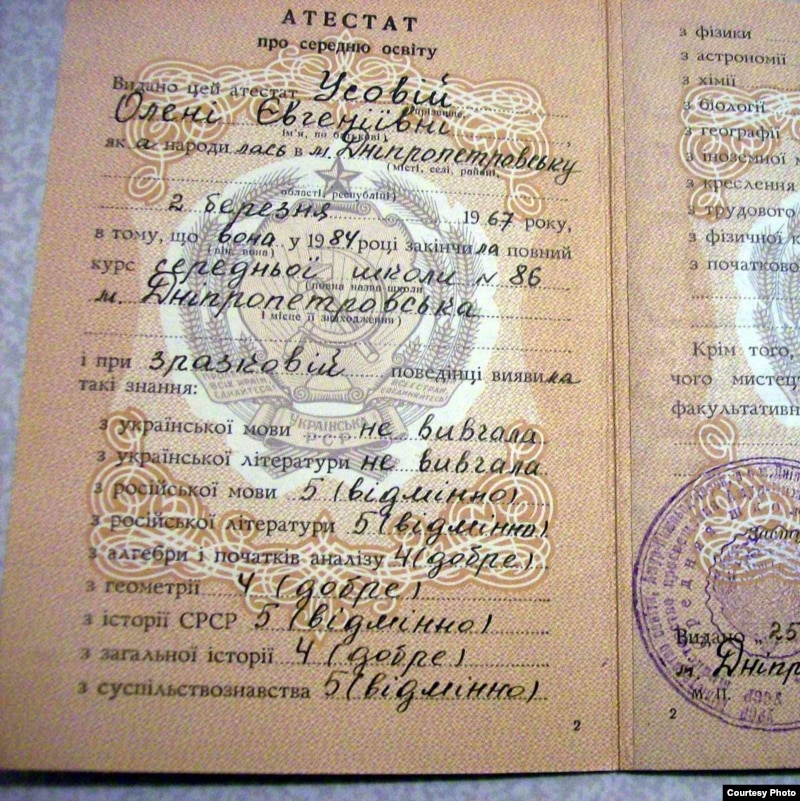 АТЕСТАТ
про середню освіту
Видано цей атестат Усовій
(прізвище,
Олені Євгеніївні,
ім'я, по батькові)
як а народилась в м. Дніпропетровську
(місті, селі, районі,
області, республіці)
2 березня 1967 року,
в тому, що вона у 1984 році закінчила повний
(він, вона)
курс середньої школи № 86
(повна назва школи
м. Дніпропетровська
і місце її знаходження)
і при зразковій поведінці виявила
такі знання:
з української мови не вивчала
з української літератури не вивчала
з російської мови 5 (відмінно)
з російської літератури 5 (відмінно)
з алгебри і початків аналізу 4 (добре)
з геометрії 4 (добре)
з історії СРСР 5 (відмінно)
з загальної історії 4 (добре)
з суспільствознавства 5 (відмінно)
2
УКРАЇНСЬКА
РСР
з фізики
з астрономії
з хімії
з біології
з географії
з іноземної
з креслення
з трудового
з фізичної
з початково
Крім того,
чого мистец
факультативн
Видано „25
м. Дніпр
М. П.
2
Courtesy Photo